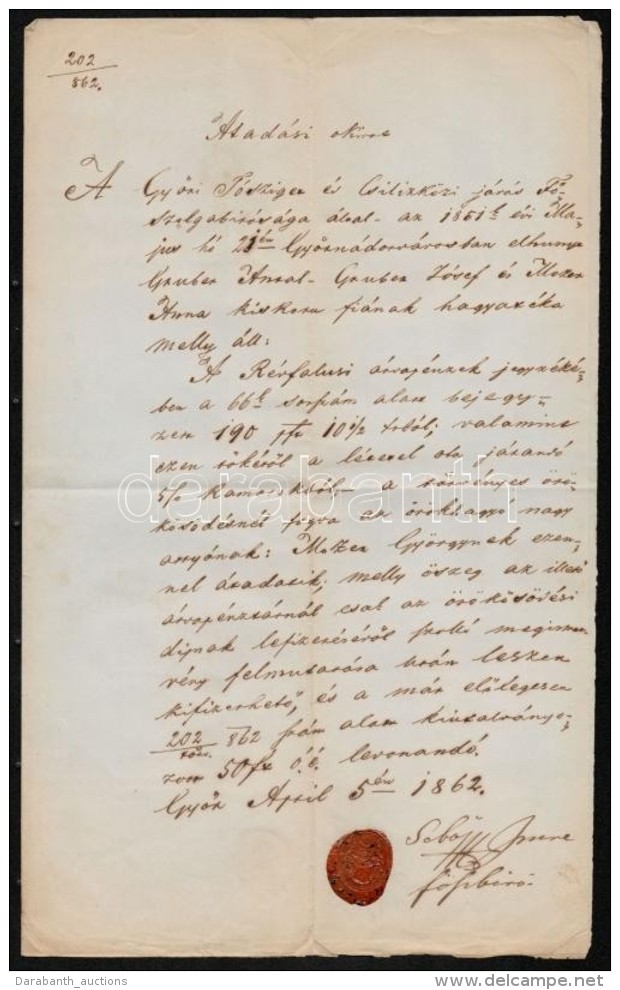 202
862.
Átadási okirat
A Győri Tósziget és Csilizközi járás Fő-
szolgabirósága által az 1851k évi Ma-
jus hó 21én Győrnádorvárosban elhunyt
Gruber Antal Gruber Jósef és Motzer
Anna kiskoru fiának hagyatéka
melly áll:
A Révfalusi árvapénzek jegyzéké-
ben a 66k szám alatt bejegy-
zett 190 pft 10 1/2 krból; valamint
ezen tőkéről a létével ota járandó
5% kamatokból, a törvényes örö-
kösödésnél fogva az örökhagyó nagy
anyjának: Motzer Györgynek ezen-
nel átadatik; melly öszeg az illető
árvapénztárnál csak az örökösödési
dijnak lefizetéséről szolló megismer-
vény felmutatására után leszen
kifizethető, és a már előlegesen
202/862 szám alatt kiutalványo-
zott 50 ft ó.é. levonandó.
Győr April 5én 1862.
Sebő Imre
főszbiró
darabanth
Darabanth_auctions
http://www.delcampe.net